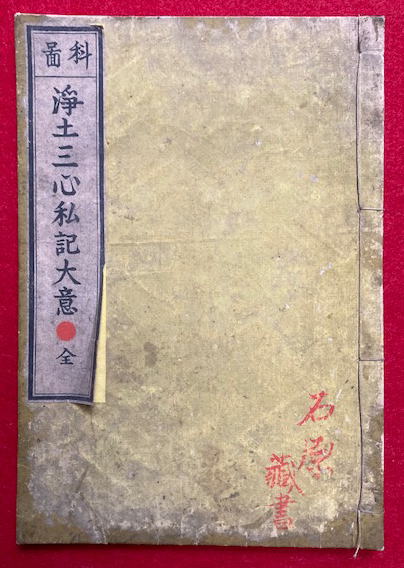 科啚
淨土三心私記大意
全
石
藏書